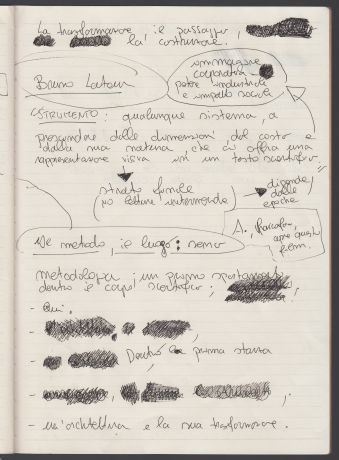 La trasformazione il passaggio,
la costruzione.
Bruno Latour
sommazione
corporativa
potere industriale
e impatto sociale
STRUMENTO: qualunque sistema, a
prescindere dalle dimensioni, dal costo e
dalla sua natura, che ci offra una
rappresentazione visiva in un testo scientifico
strato finale
no letture intermedie
dipende
dalle
epoche
Il metodo, il luogo: remo
A.,
apre questi
metodologia: un primo spostamento
dentro il corpo scientifico;
- Qui.
-
- Dentro la prima stanza
-
- un'architettura e la sua trasformazione.